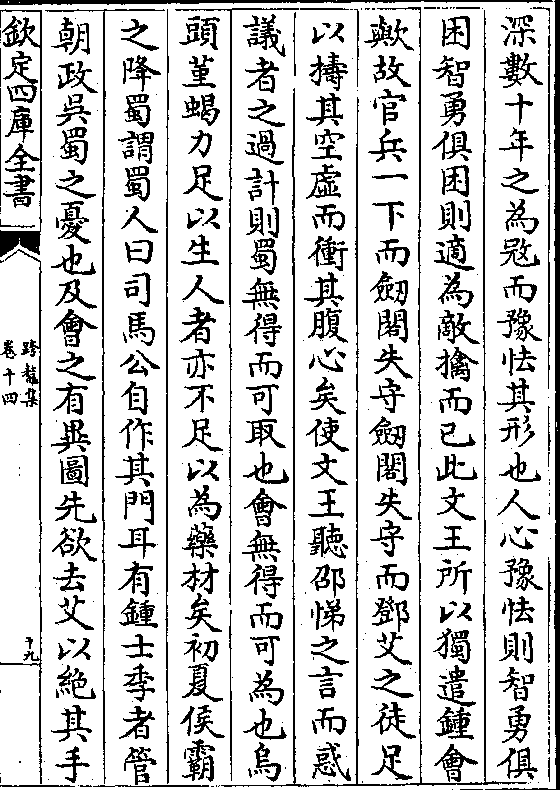 深數十年之為冦而豫怯其形也人心豫怯則智勇俱
困智勇俱困則適為敵擒而已此文王所以獨遣鍾會
歟故官兵一下而劒閣失守劒閣失守而鄧艾之徒足
以擣其空虛而衝其腹心矣使文王聽邵悌之言而惑
議者之過計則蜀無得而可取也會無得而可為也烏
頭菫蝎力足以生人者亦不足以為藥材矣初夏侯霸
之降蜀謂蜀人曰司馬公自作其門耳有鍾士季者管
朝政吳蜀之憂也及會之有異圖先欲去艾以絶其手
欽定四庫全書
跨鼇集
卷十四
十九